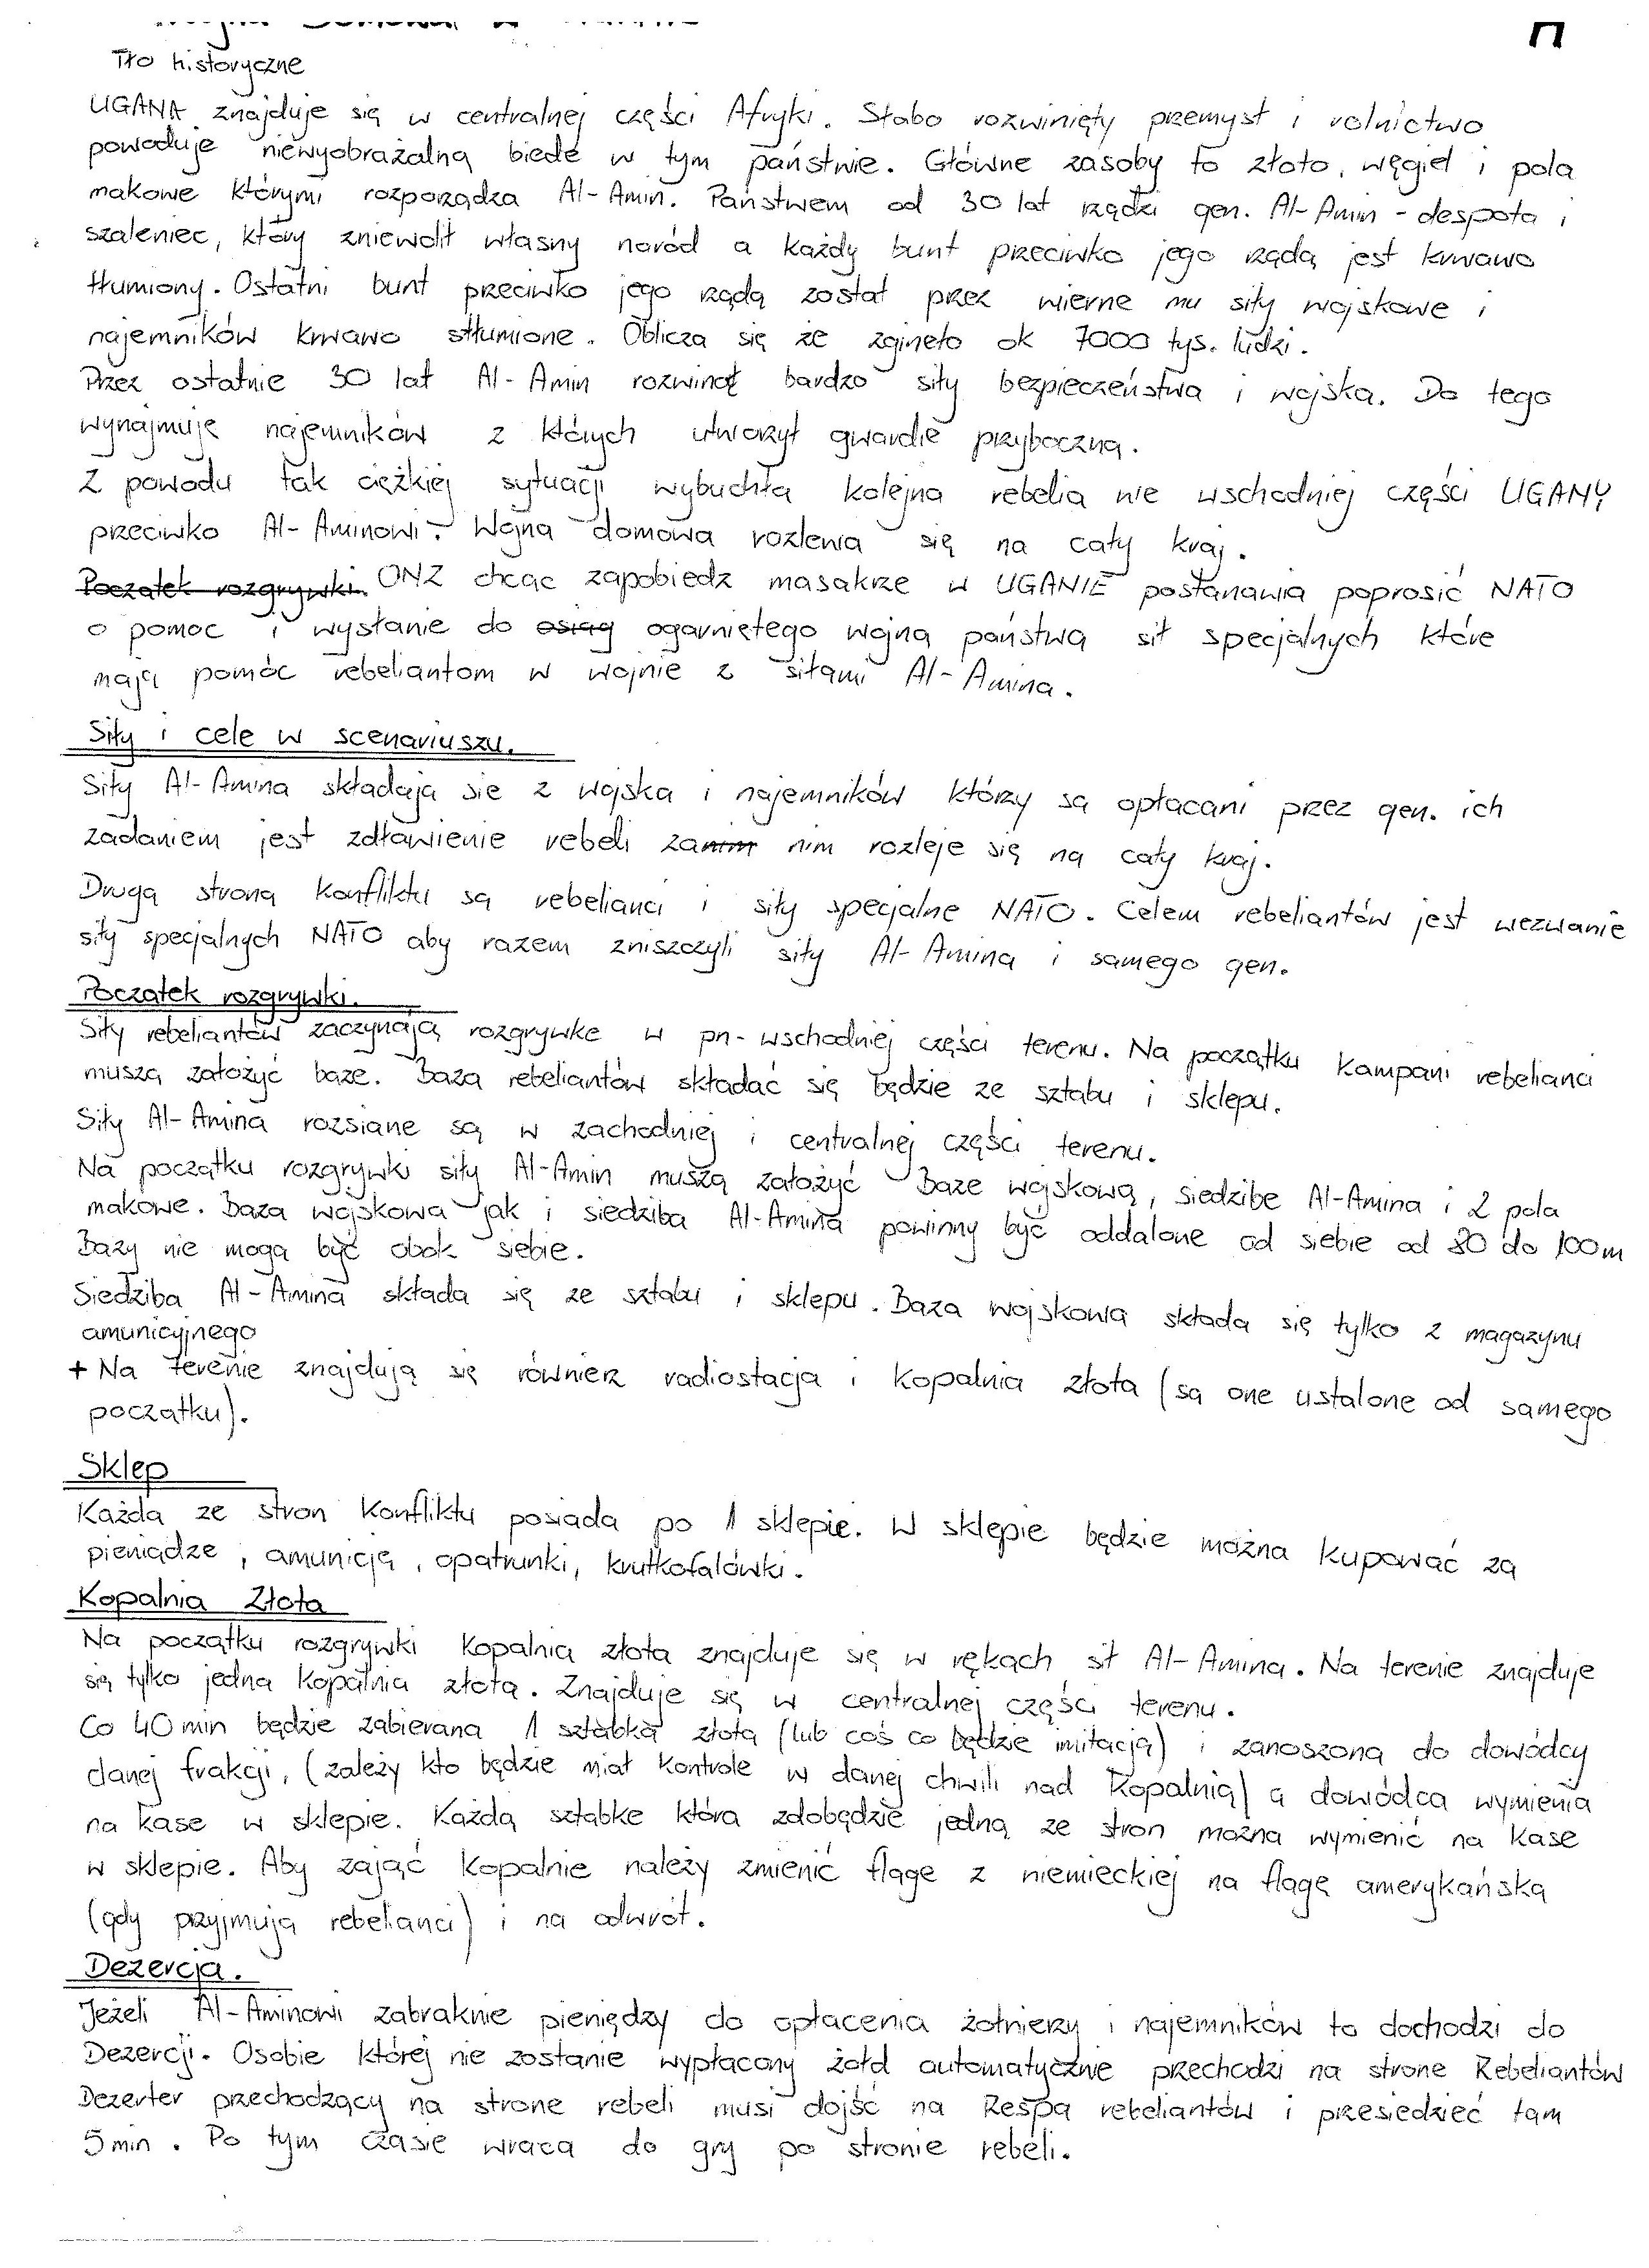 Tło historyczne
UGANA znajduje się w centralnej części Afryki. Słabo rozwinięty przemysł i rolnictwo
powoduje niewyobrażalną biede w tym państwie. Główne zasoby to złoto, węgiel i pola
makowe którymi rozporządza Al-Amin. Państwem od 30 lat rządzi gen. Al-Amin - despota i
szaleniec, który zniewolił własny naród a każdy bunt przeciwko jego rządą jest krwawo
tłumiony. Ostatni bunt przeciwko jego rządą został przez wierne mu siły wojskowe i
najemników krwawo stłumione. Oblicza się że zgineło ok 7000 tys. ludzi.
Przez ostatnie 30 lat Al-Amin rozwinął bardzo siły bezpieczeństwa i wojska. Do tego
wynajmuję najemników z których utworzył gwardie przyboczną.
Z powodu tak ciężkiej sytuacji wybuchła kolejna rebelia we wschodniej części UGANY
przeciwko Al-Aminowi. Wojna domowa rozlewa się na cały kraj.
Początek rozgrywki. ONZ chcąc zapobiedz masakrze w UGANIE postanawia poprosić NATO
o pomoc i wysłanie do osiąg ogarniętego wojną państwa sił specjalnych które
mają pomóc rebeliantom w wojnie z siłami Al-Amina.
Siły i cele w scenariuszu.
Siły Al-Amina składają sie z wojska i najemników którzy są opłacani przez gen. ich
zadaniem jest zdławienie rebeli zanim nim rozleje się na cały kraj.
Drugą stroną konfliktu są rebelianci i siły specjalne NATO. Celem rebeliantów jest wezwanie
siły specjalnych NATO aby razem zniszczyli siły Al-Amina i samego gen.
Początek rozgrywki.
Siły rebeliantów zaczynają rozgrywke w pn-wschodniej części terenu. Na początku kampani rebelianci
muszą założyć baze. Baza rebeliantów składać się będzie ze sztabu i sklepu.
Siły Al-Amina rozsiane są w zachodniej i centralnej części terenu.
Na początku rozgrywki siły Al-Amin muszą założyć Baze wojskową, siedzibe Al-Amina i 2 pola
makowe. Baza wojskowa jak i siedziba Al-Amina powinny być oddalone od siebie od 80 do 100m
Bazy nie mogą być obok siebie.
Siedziba Al-Amina składa się ze sztabu i sklepu. Baza wojskowa składa się tylko z magazynu
amunicyjnego
+ Na terenie znajdują się równierz radiostacja i kopalnia złota (są one ustalone od samego
początku).
Sklep
Każda ze stron konfliktu posiada po 1 sklepie. W sklepie będzie można kupować za
pieniądze, amunicję, opatrunki, krutkofalówki.
Kopalnia Złota
Na początku rozgrywki kopalnia złota znajduje się w rękach sił Al-Amina. Na terenie znajduje
się tylko jedna kopalnia złota. Znajduje się w centralnej części terenu.
Co 40 min będzie zabierana 1 sztabka złota (lub coś co będzie imitacją) i zanoszona do dowódcy
danej frakcji, (zależy kto będzie miał kontrole w danej chwili nad kopalnią) a dowódca wymienia
na kase w sklepie. Każdą sztabke którą zdobędzie jedną ze stron można wymienić na kase
w sklepie. Aby zająć kopalnie należy zmienić flagę z niemieckiej na flagę amerykańską
(gdy przyjmują rebelianci) i na odwrót.
Dezercja.
Jeżeli Al-Aminowi zabraknie pieniędzy do opłacenia żołnierzy i najemników to dochodzi do
Dezercji. Osobie której nie zostanie wypłacony żołd automatycznie przechodzi na strone Rebeliantów
Dezerter przechodzący na strone rebeli musi dojść na Respa rebeliantów i przesiedzieć tam
5min. Po tym czasie wraca do gry po stronie rebeli.